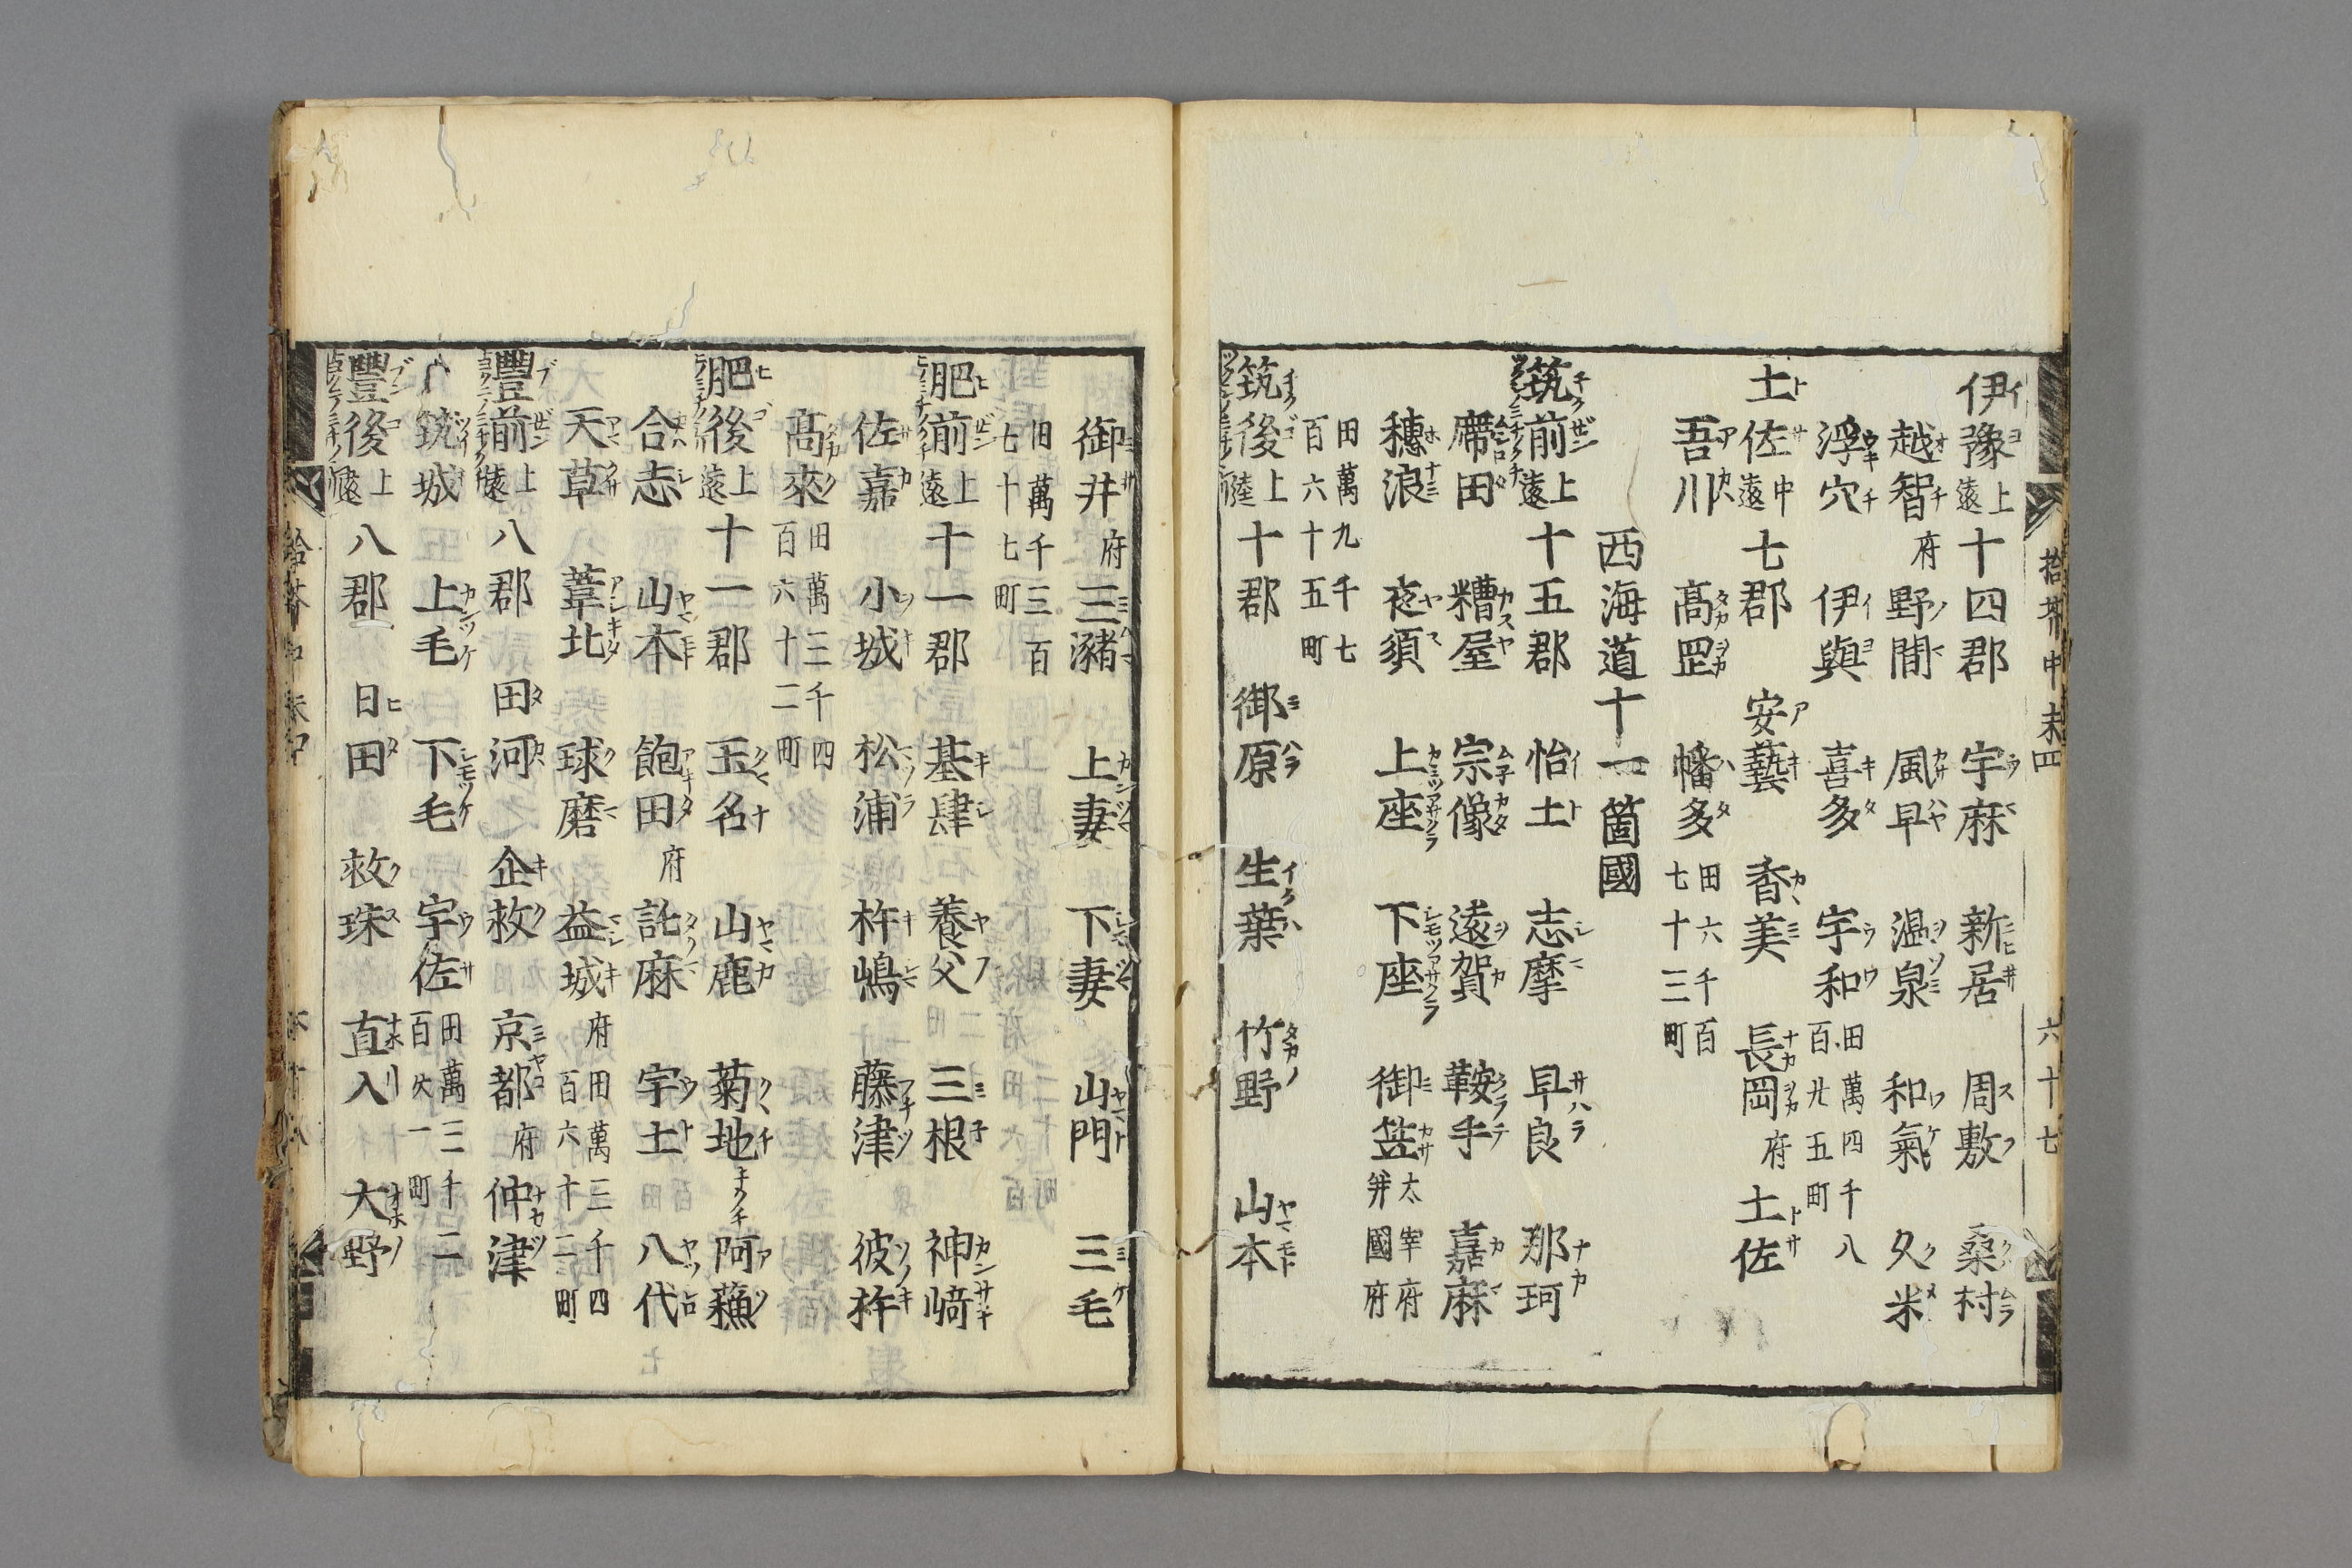 伊豫上遠十四郡 宇麻 新居 周敷 桑村
越智府 野間 風早 温泉 和氣 久米
浮穴 伊與 喜多 宇和 田萬四千八百廿五町
土佐中遠七郡 安藝 香美 長岡府 土佐
吾川 髙罡 幡多 田六千百七十三町
西海道十一箇國
筑前上遠十五郡 怡土 志摩 早良 那珂
席田 糟屋 宗像 遠賀 鞍手 嘉麻
穗浪 夜須 上座 下座 御笠 太宰府并國府
田萬九千七百六十五町
筑後上遠十郡 御原 生葉 竹野 山本
御井府 三瀦 上妻 下妻 山門 三毛
田萬千三百七十七町
肥前上遠十一郡 基肆 養父 三根 神﨑
佐嘉 小城 松浦 杵嶋 藤津 彼杵
髙來 田萬三千四百六十二町
肥後上遠十一郡 玉名 山鹿 菊地 阿蘓
合志 山本 飽田府 託麻 宇土 八代
天草 葦北 球磨 益城府 田萬三千四百六十二町
豐前上遠八郡 田河 企救 京都府 仲津
筑城 上毛 下毛 宇佐 田萬三千二百六一町
豐後上遠八郡 日田 救珠 直入 大野
拾芥中末 四 六十七